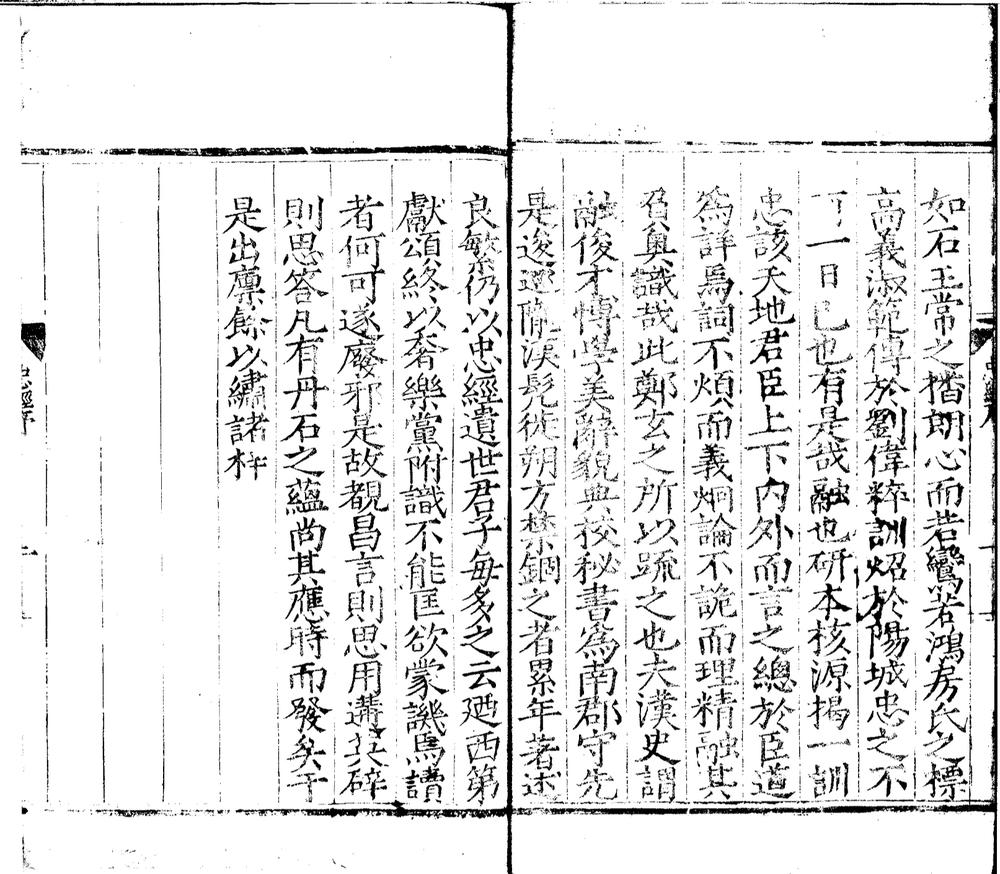 如石王常之楷朗心而若鸞若鴻房氏之標
高義淑範傳於劉偉粹訓炤於陽城忠之不
可一日已也有是哉融也研本核源揭一訓
忠該天地君臣上下內外而言之總於臣道
為詳焉詞不煩而義炯論不詭而理精融其
負奧識哉此鄭玄之所以䟽之也夫漢史謂
融俊才博學美辭貌典校秘書為南郡守先
是逡遯隴漢髡徙朔方禁錮之者累年著述
良繁仍以忠經遺世君子每多之云廼西第
獻頌終以奢樂黨附識不能匡欲蒙譏焉讀
者何可遂廢邪是故覩昌言則思用遘共碎
則思答凡有丹石之蘊尚其應時而發矣于
是出廪餘以繡諸梓
忠經序